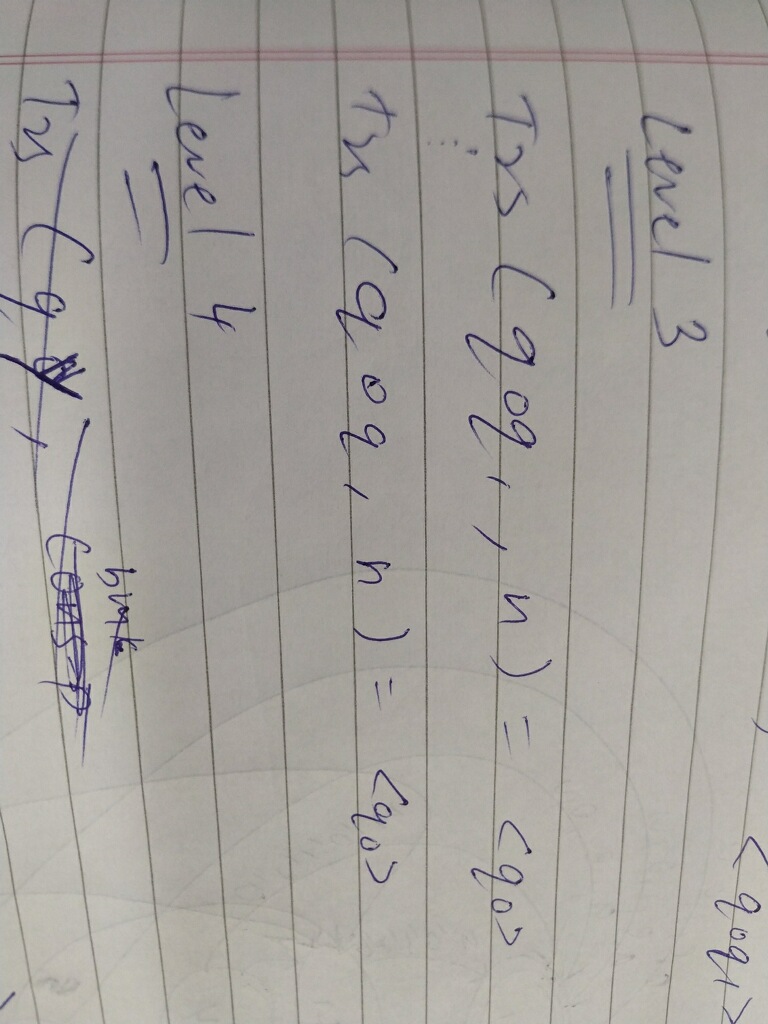 <q0q1>
Level 3
Trs (q0q1, n) = <q0>
Trs (q0q, n) = <q0>
Level 4
Trs (q